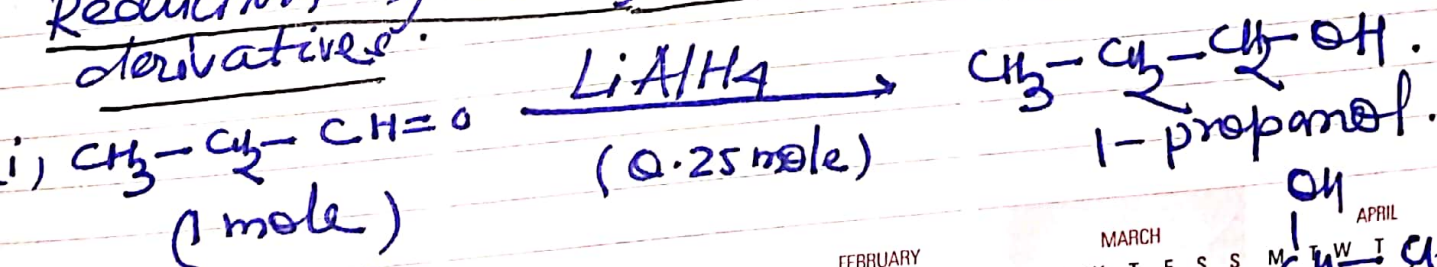 derivatives.
i) CH3-CH2-CH=O LiAlH4 (0.25 mole) CH3-CH2-CH2-OH.
(1 mole) 1-propanol.
OH
FEBRUARY MARCH APRIL
T F S S M T W T